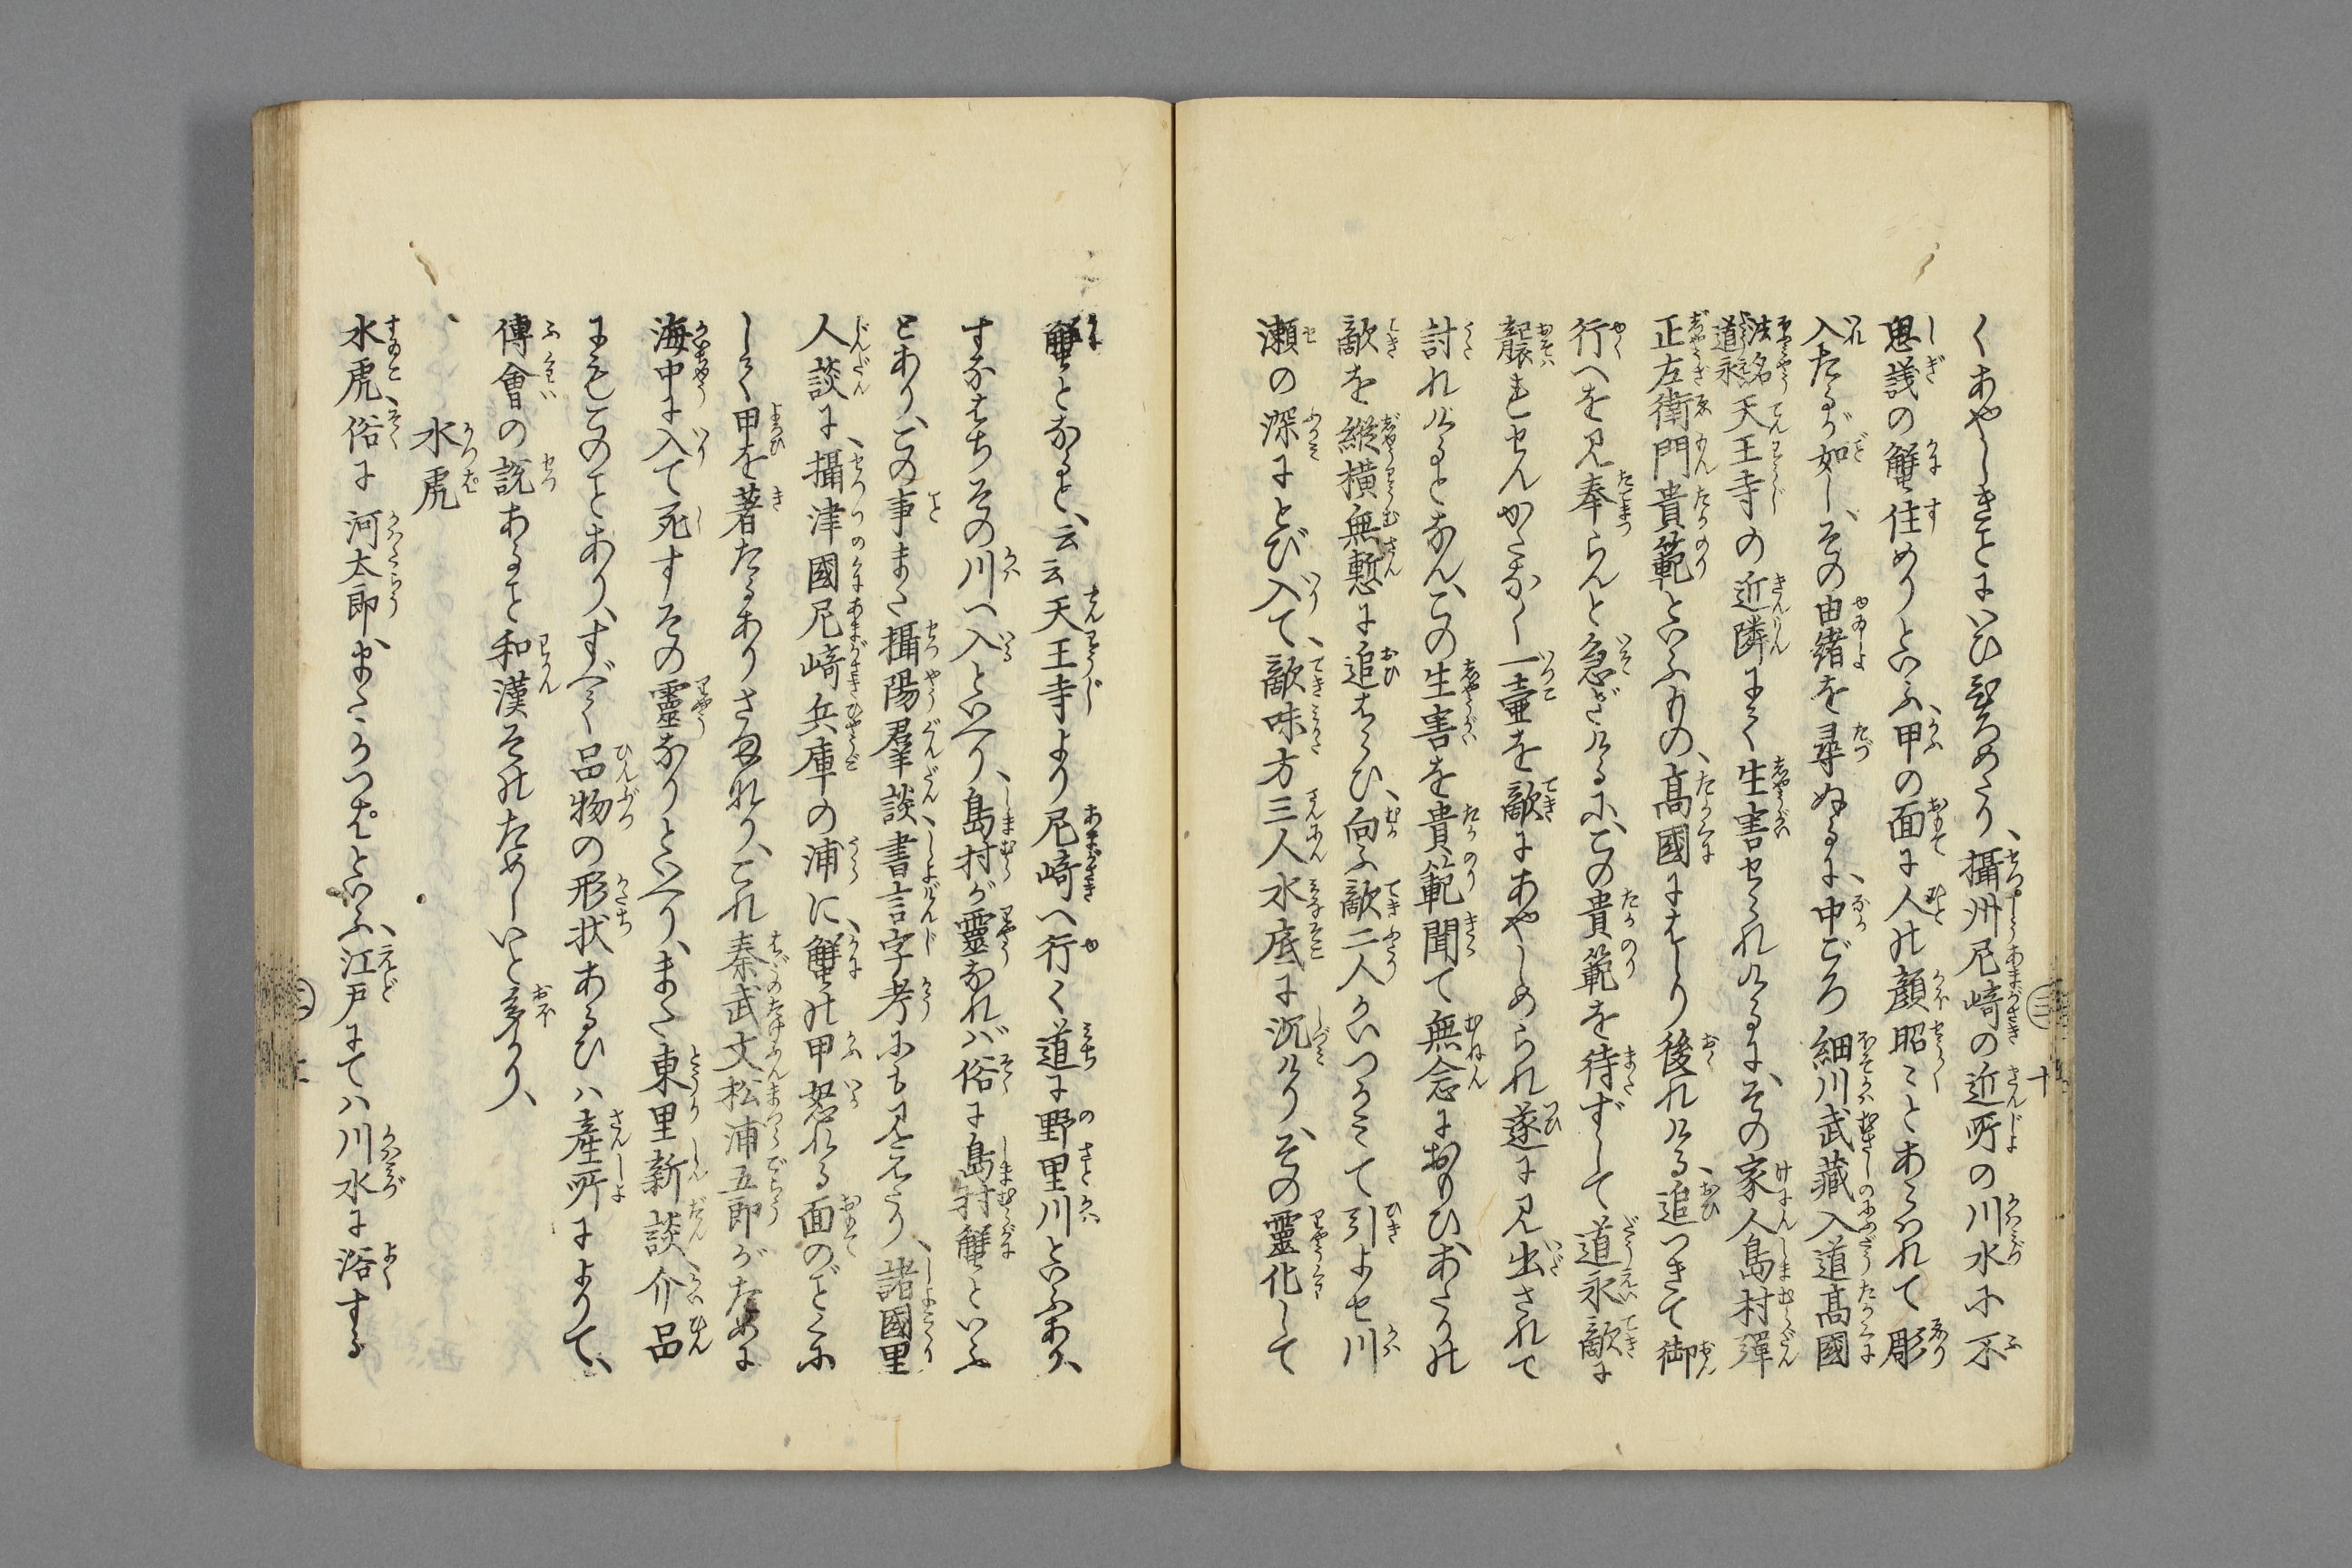 くあやしきことにいひひろめたり、攝州尼﨑の近所の川水に不
思議の蟹住めりといふ、甲の面に人の顔昭ことあらわれて彫
入たるが如し、その由緒を尋ぬるに、中ごろ細川武藏入道髙國
法名道永天王寺の近隣にて生害せられけるに、その家人島村彈
正左衛門貴範といふもの、髙國にはしり後れける、追つきて御
行へを見奉らんと急ぎけるに、この貴範を待ずして道永敵に
襲はせんかたなく一壷を敵にあやしめられ遂に見出されて
討れけるとなん、この生害を貴範聞て無念におもひあたりの
敵を縦横無慙に追はらひ、向ふ敵二人かいつかみて引よせ川
瀬の深にとび入て、敵味方三人水底に沉けり、その靈化して
蟹となると、云云天王寺より尼﨑へ行く道に野里川といふあり、
すなはちその川へ入といへり、島村が靈なれバ俗に島村蟹といふ
とあり、この事また攝陽羣談、書言字考にも見えたり、諸國里
人談に、攝津國尼﨑兵庫の浦に、蟹の甲怒れる面のごとくに
して甲を著たるありさまなり、これ秦武文松浦五郎がために
海中に入て死すその靈なりといへり、また東里新談、介品
にもこのことあり、すべて品物の形状あるひハ産所によりて、
傳會の説あること和漢それためしいと多かり、
水虎
水虎、俗に河太郎、またかつぱといふ、江戸にてハ川水に浴する
三 十